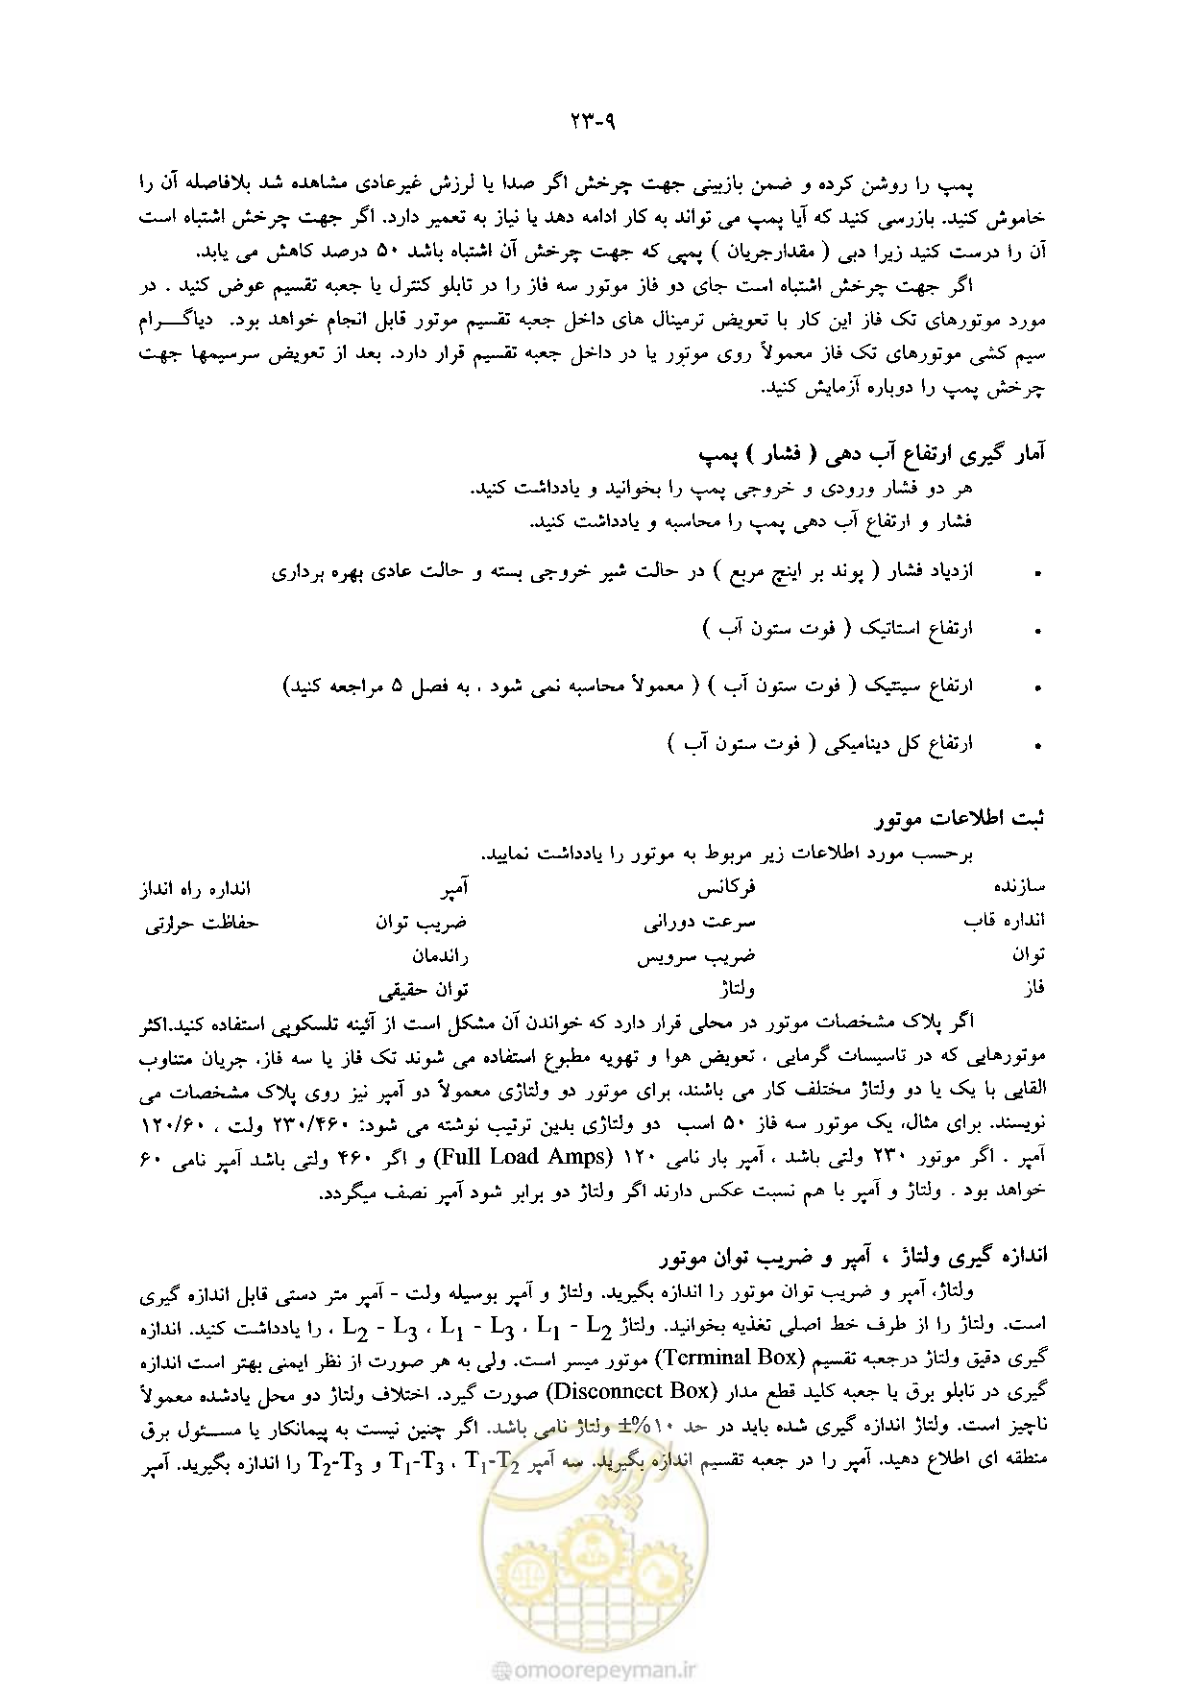 ۲۳-۹
پمپ را روشن کرده و ضمن بازبینی جهت چرخش اگر صدا یا لرزش غیرعادی مشاهده شد بلافاصله آن را
خاموش کنید. بازرسی کنید که آیا پمپ می تواند به کار ادامه دهد یا نیاز به تعمیر دارد. اگر جهت چرخش اشتباه است
آن را درست کنید زیرا دبی ( مقدارجریان ) پمپی که جهت چرخش آن اشتباه باشد ۵۰ درصد کاهش می یابد.
اگر جهت چرخش اشتباه است جای دو فاز موتور سه فاز را در تابلو کنترل یا جعبه تقسیم عوض کنید . در
مورد موتورهای تک فاز این کار با تعویض ترمینال های داخل جعبه تقسیم موتور قابل انجام خواهد بود. دیاگـــرام
سیم کشی موتورهای تک فاز معمولاً روی موتور یا در داخل جعبه تقسیم قرار دارد. بعد از تعویض سرسیمها جهت
چرخش پمپ را دوباره آزمایش کنید.
آمار گیری ارتفاع آب دهی ( فشار ) پمپ
هر دو فشار ورودی و خروجی پمپ را بخوانید و یادداشت کنید.
فشار و ارتفاع آب دهی پمپ را محاسبه و یادداشت کنید.
• ازدیاد فشار ( پوند بر اینچ مربع ) در حالت شیر خروجی بسته و حالت عادی بهره برداری
• ارتفاع استاتیک ( فوت ستون آب )
• ارتفاع سینتیک ( فوت ستون آب ) ( معمولاً محاسبه نمی شود ، به فصل ۵ مراجعه کنید)
• ارتفاع کل دینامیکی ( فوت ستون آب )
ثبت اطلاعات موتور
برحسب مورد اطلاعات زیر مربوط به موتور را یادداشت نمایید.
سازنده فرکانس آمپر انداره راه انداز
انداره قاب سرعت دورانی ضریب توان حفاظت حرارتی
توان ضریب سرویس راندمان
فاز ولتاژ توان حقیقی
اگر پلاک مشخصات موتور در محلی قرار دارد که خواندن آن مشکل است از آئینه تلسکوپی استفاده کنید.اکثر
موتورهایی که در تاسیسات گرمایی ، تعویض هوا و تهویه مطبوع استفاده می شوند تک فاز یا سه فاز، جریان متناوب
القایی با یک یا دو ولتاژ مختلف کار می باشند، برای موتور دو ولتاژی معمولاً دو آمپر نیز روی پلاک مشخصات می
نویسند. برای مثال، یک موتور سه فاز ۵۰ اسب دو ولتاژی بدین ترتیب نوشته می شود: ۲۳۰/۴۶۰ ولت ، ۱۲۰/۶۰
آمپر . اگر موتور ۲۳۰ ولتی باشد ، آمپر بار نامی ۱۲۰ (Full Load Amps) و اگر ۴۶۰ ولتی باشد آمپر نامی ۶۰
خواهد بود . ولتاژ و آمپر با هم نسبت عکس دارند اگر ولتاژ دو برابر شود آمپر نصف میگردد.
اندازه گیری ولتاژ ، آمپر و ضریب توان موتور
ولتاژ، آمپر و ضریب توان موتور را اندازه بگیرید. ولتاژ و آمپر بوسیله ولت - آمپر متر دستی قابل اندازه گیری
است. ولتاژ را از طرف خط اصلی تغذیه بخوانید. ولتاژ L1 - L2 ، L1 - L3 ، L2 - L3 ، را یادداشت کنید. اندازه
گیری دقیق ولتاژ درجعبه تقسیم (Terminal Box) موتور میسر است. ولی به هر صورت از نظر ایمنی بهتر است اندازه
گیری در تابلو برق یا جعبه کلید قطع مدار (Disconnect Box) صورت گیرد. اختلاف ولتاژ دو محل یادشده معمولاً
ناچیز است. ولتاژ اندازه گیری شده باید در حد ۱۰%± ولتاژ نامی باشد. اگر چنین نیست به پیمانکار یا مســئول برق
منطقه ای اطلاع دهید. آمپر را در جعبه تقسیم اندازه بگیرید. سه آمپر T1-T2 ، T1-T3 و T2-T3 را اندازه بگیرید. آمپر
امور پیمان
@omoorepeyman.ir